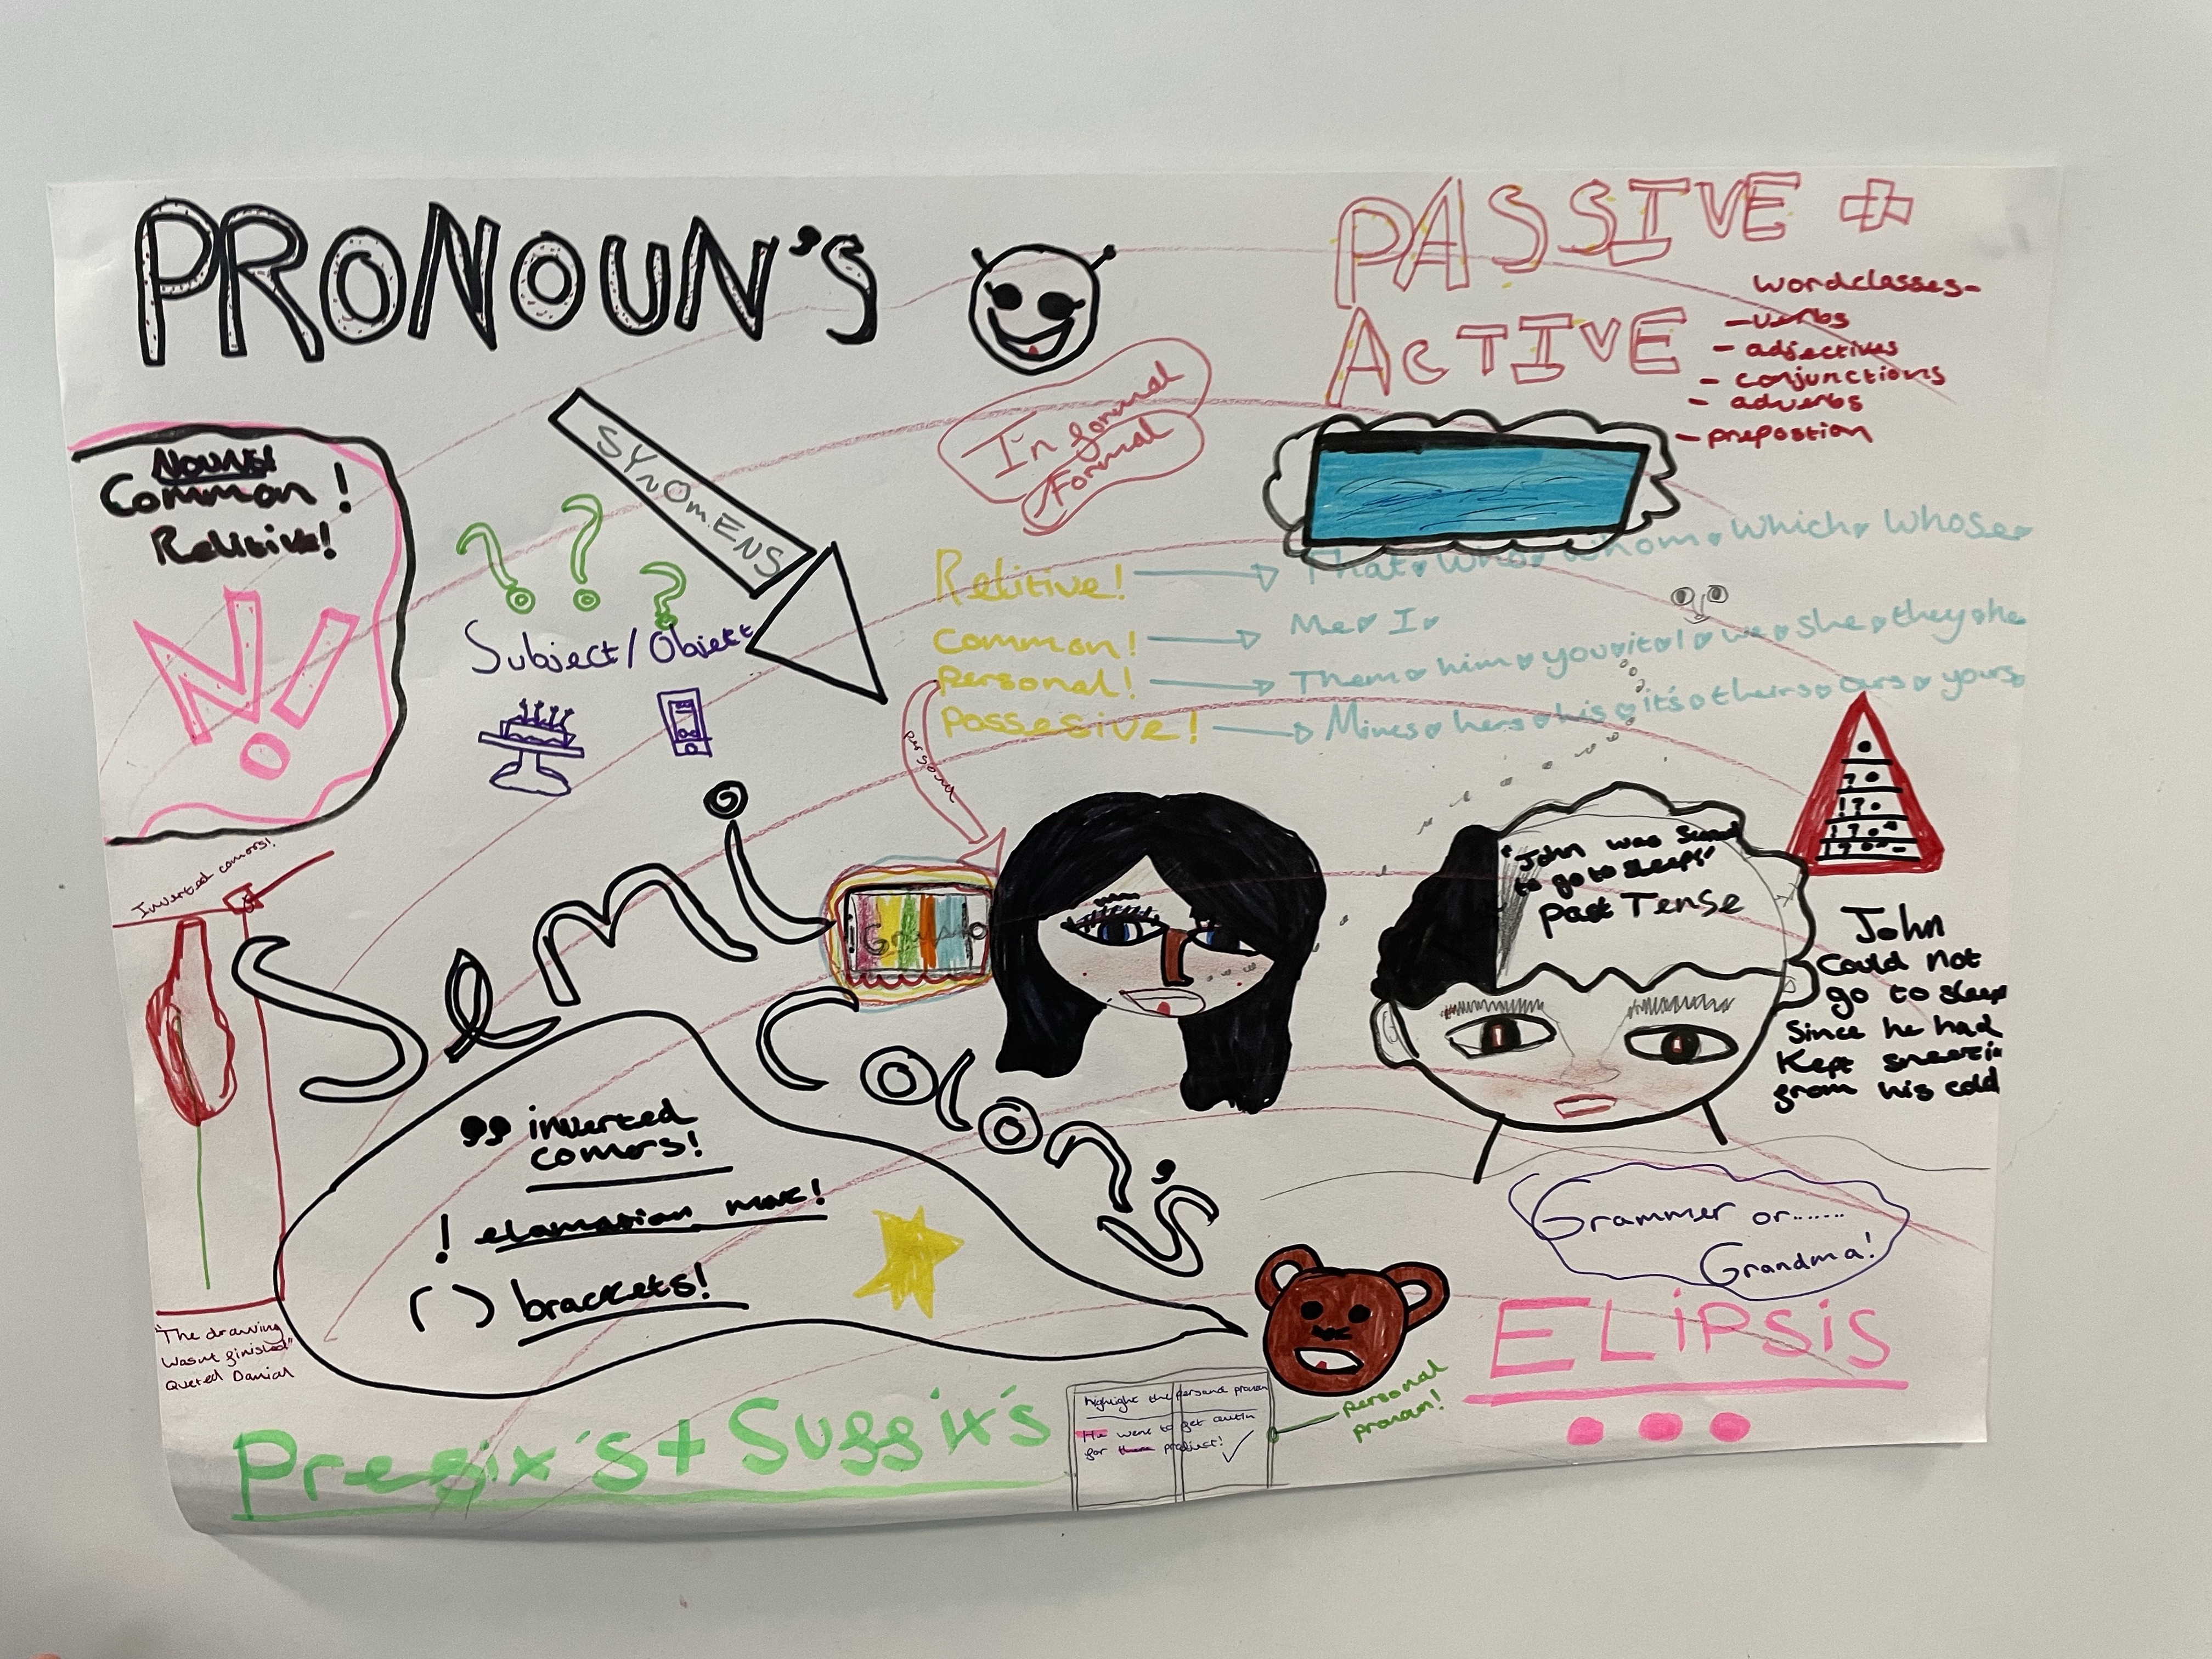 PRONOUN'S
PASSIVE +
ACTIVE
wordclasses-
- verbs
- adjectives
- conjunctions
- adverbs
- prepostion
Informal
Formal
SYNOMENS
NOUNS!
Common!
Relitive!
???
Subject/Object
Relitive! → That Who Whom Which Whose
Common! → Me I
Personal! → Them him you it I we she they he
Possesive! → Mines hers his it's theirs ours yours
personal
Inverted comors!
Semi
Colon's
"John was
to go to sleep"
Past Tense
.
? .
! ? .
John
Could not
go to sleep
Since he had
Kept
from his cold
,, inverted
comors!
! elamation mark!
( ) brackets!
Grammer or.......
Grandma!
ELiPSiS
...
"The drawing
wasnt finished"
Quoted Danial
Prefix's + Suffix's
highlight the personal pronoun
He went to get
for them
personal
pronoun!